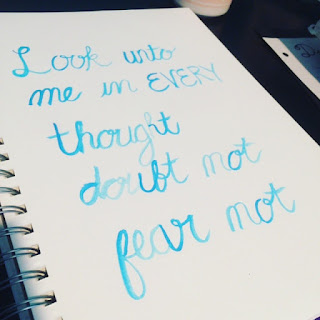 Look unto
me in EVERY
thought
doubt not
fear not